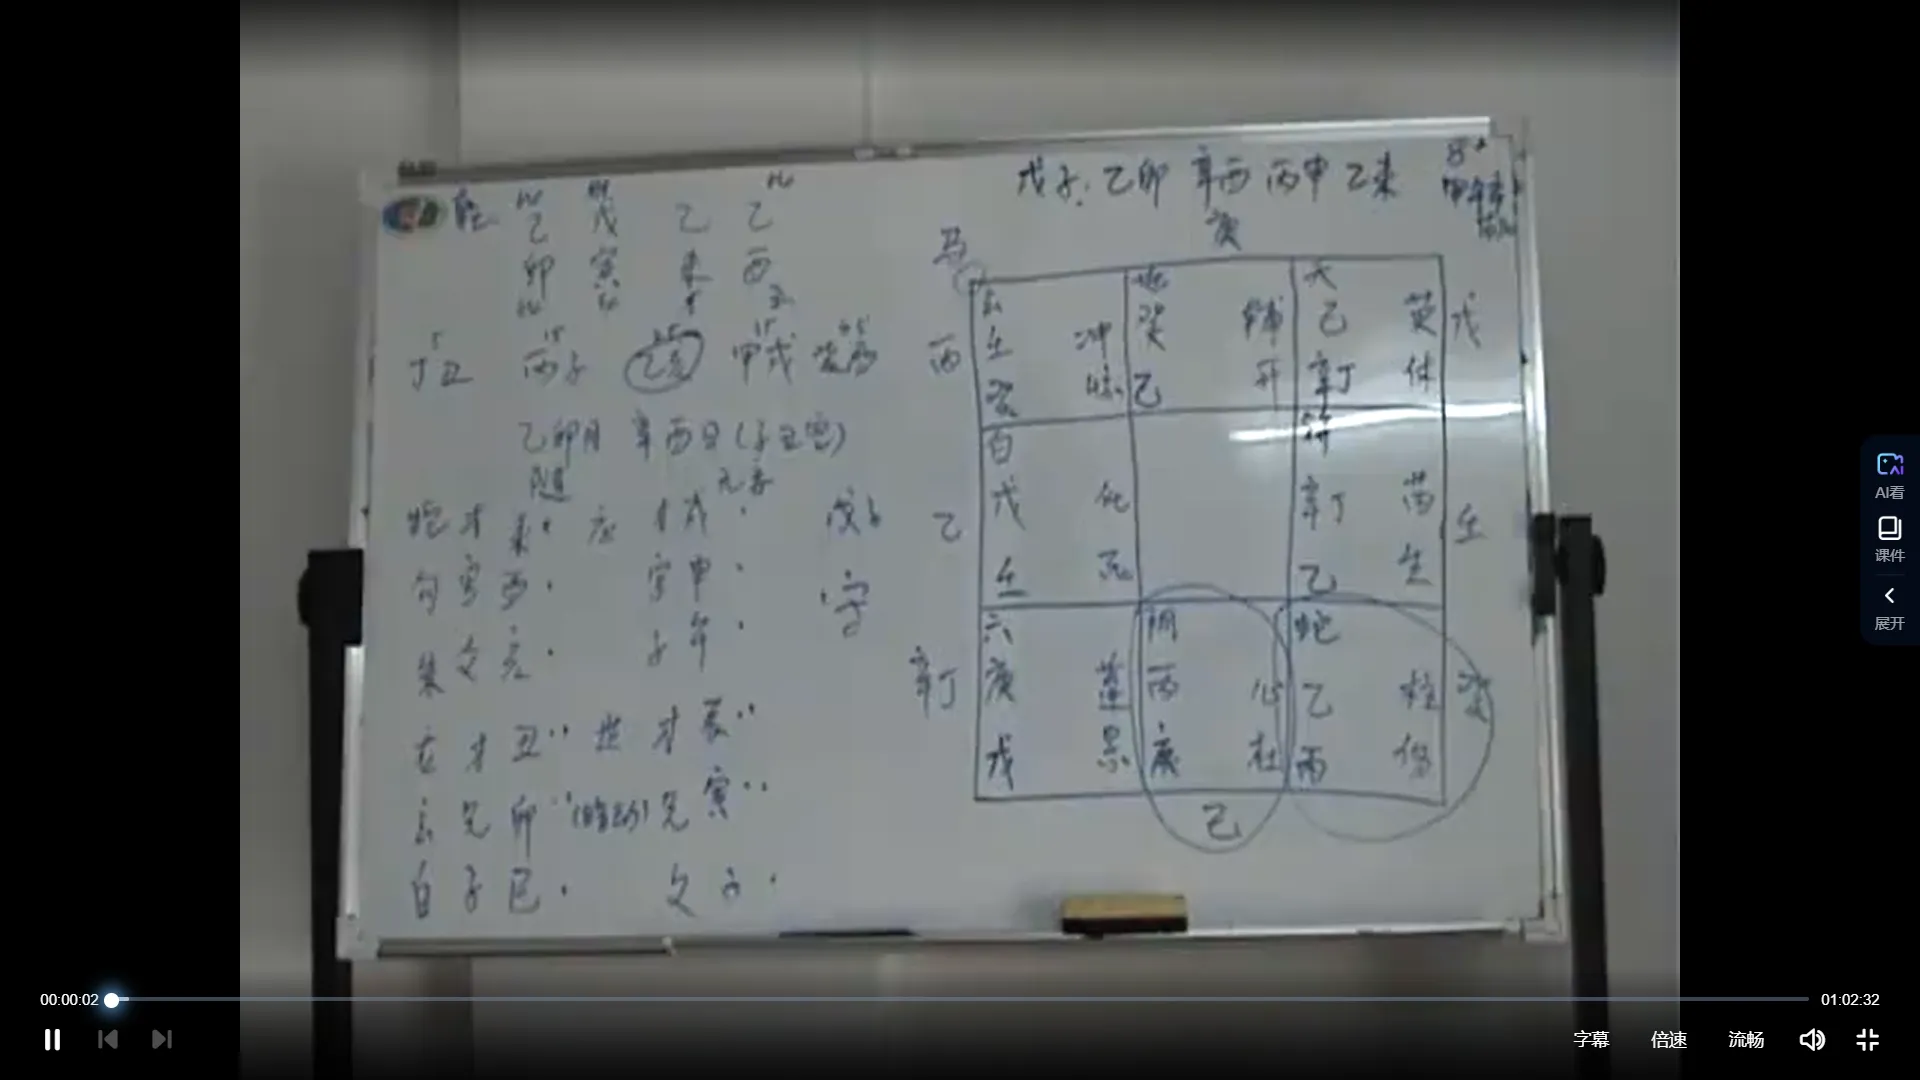 乙 戊 乙 乙
卯 寅 未 酉
丁丑 丙子 乙亥 甲戌 癸酉
乙卯月 辛酉日(子丑空)
随 无妄
蛇 才 未 应 才 戌
勾 官 酉 官 申
朱 父 亥 子 午
青 才 丑 世 才 辰
玄 兄 卯 (暗动) 兄 寅
白 子 巳 父 子
戊子
官
戊子 乙卯 辛酉 丙申 乙未
马 庚
玄 地 天
丙 壬 冲 癸 辅 己 英 戊
癸 惊 己 开 辛丁 休
白 符
乙 戊 任 辛丁 芮 壬
壬 死 乙 生
六 阴 蛇
辛丁 庚 蓬 丙 心 乙 柱 癸
戊 景 庚 杜 丙 伤
己
AI看
课件
展开
00:00:02
01:02:32
字幕 倍速 流畅